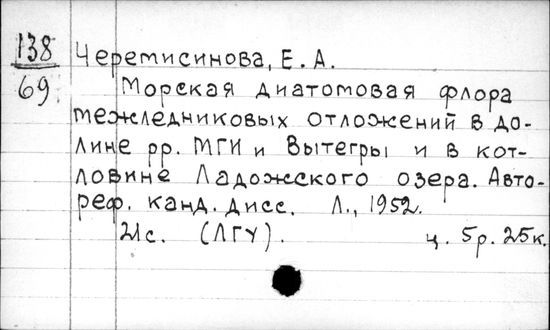 138
69
Черемисинова, Е. А.
Морская диатомовая флора
межледниковых отложений в до-
лине рр. МГИ и Вытегры и в кот-
ловине Ладожского озера. Авто-
реф. канд. дисс. Л., 1952.
21с. (ЛГУ). ц. 5р. 25к.